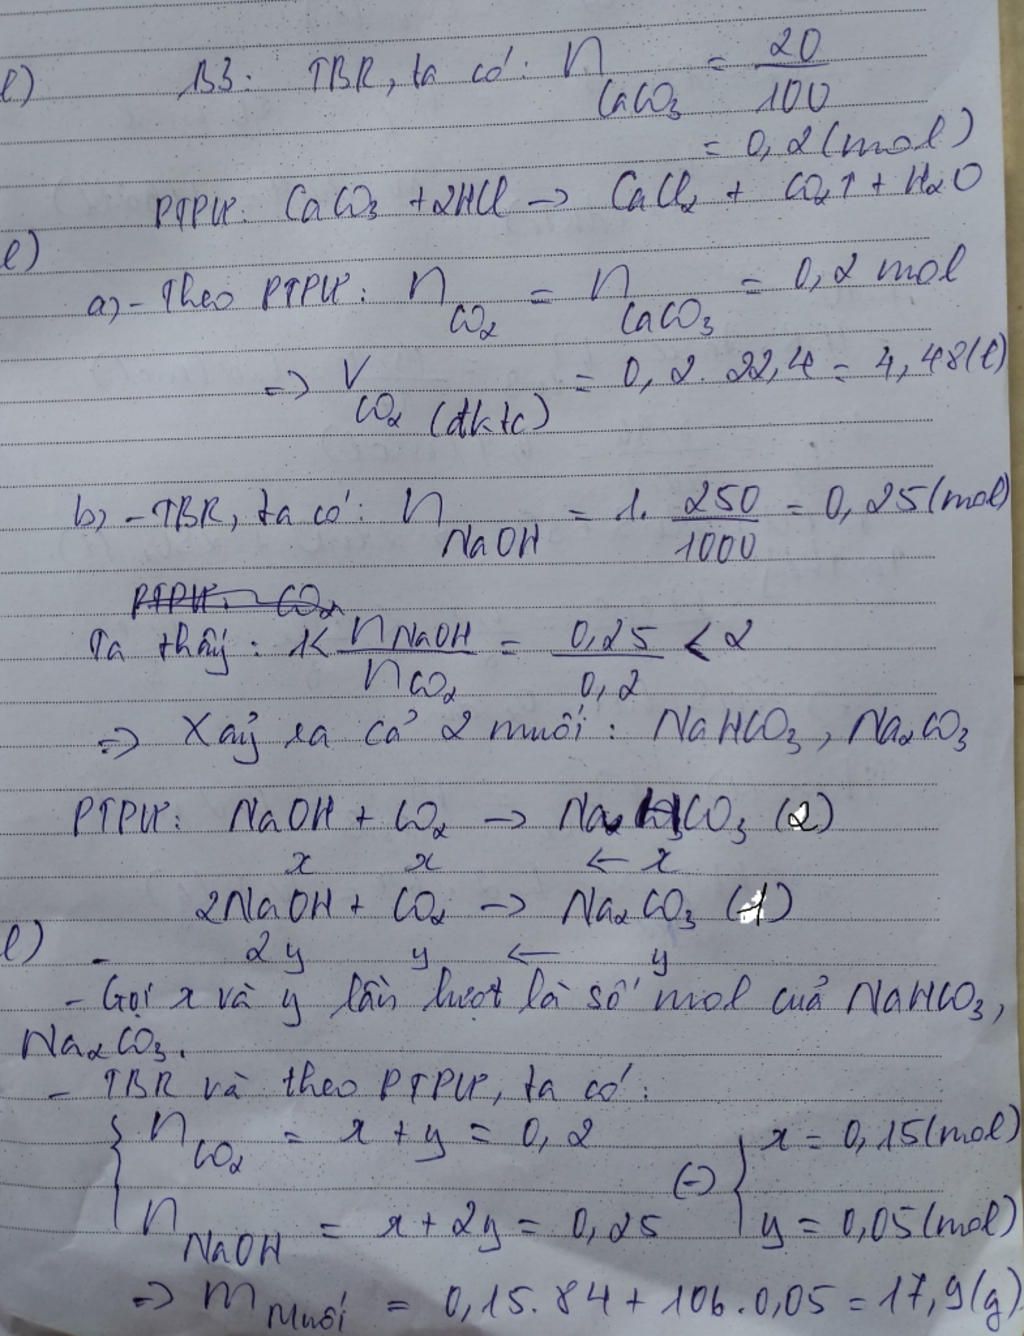 l) B3: TBR, ta có: n CaCO3 = 20/100
= 0,2 (mol)
PTPƯ: CaCO3 + 2HCl → CaCl2 + CO2↑ + H2O
l)
a) - Theo PTPƯ: n CO2 = n CaCO3 = 0,2 mol
=> V CO2 (đktc) = 0,2 . 22,4 = 4,48 (l)
b) - TBR, ta có: n NaOH = 1. 250/1000 = 0,25 (mol)
PTPƯ: CO2
Ta thấy: 1 < n NaOH / n CO2 = 0,25/0,2 < 2
=> Xảy ra cả 2 muối: NaHCO3, Na2CO3
PTPƯ: NaOH + CO2 → NaHCO3 (2)
x x ← x
2NaOH + CO2 → Na2CO3 (1)
l) - 2y y ← y
- Gọi x và y lần lượt là số mol của NaHCO3,
Na2CO3.
- TBR và theo PTPƯ, ta có:
{ n CO2 = x + y = 0,2 (=) { x = 0,15 (mol)
n NaOH = x + 2y = 0,25 y = 0,05 (mol)
=> m muối = 0,15.84 + 106.0,05 = 17,9 (g).